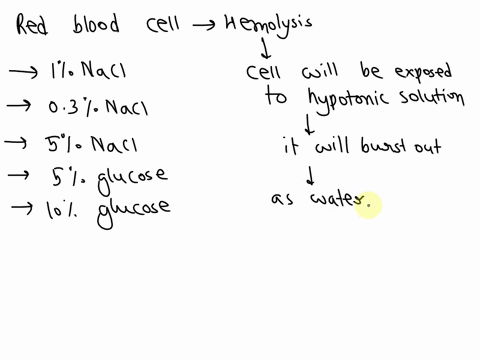 Red blood cell → Hemolysis
↓
→ 1% NaCl
→ 0.3% NaCl
→ 5% NaCl
→ 5% glucose
→ 10% glucose
cell will be exposed
to hypotonic solution
↓
it will burst out
↓
as water.